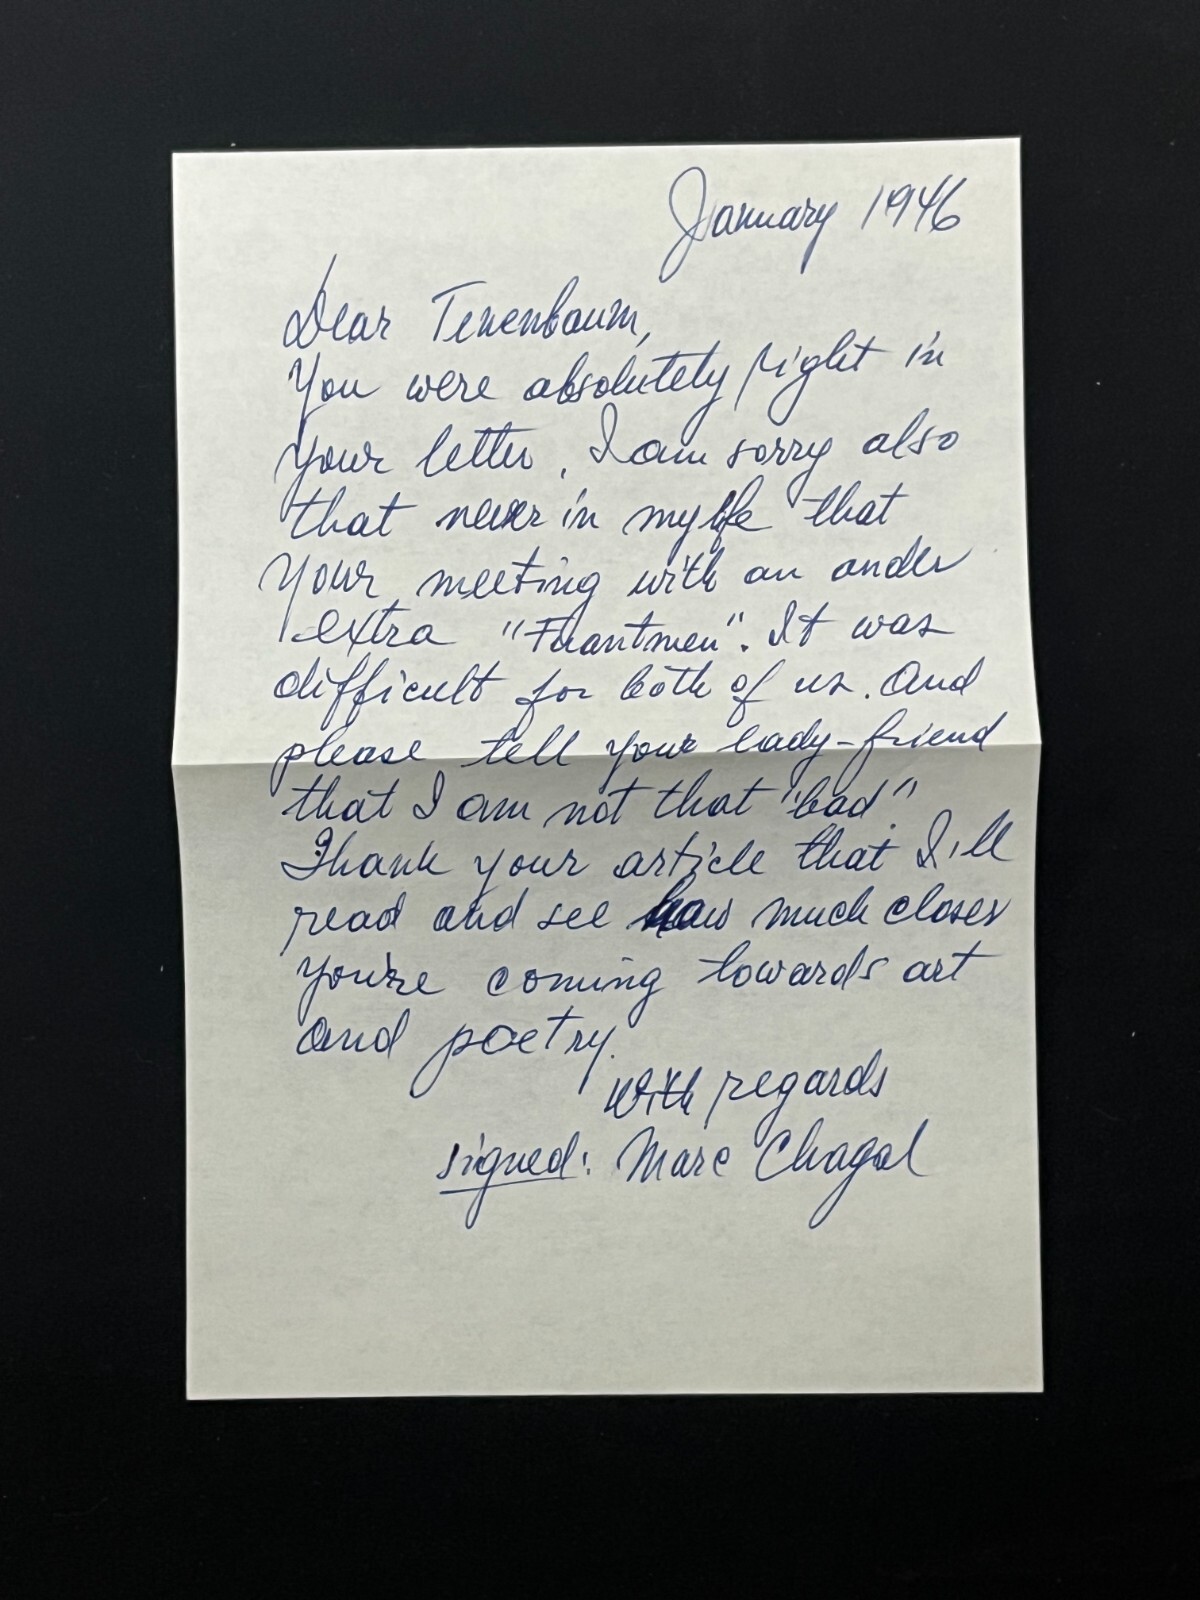 January 1946
Dear Tenenbaum,
You were absolutely right in
your letter. I am sorry also
that never in my life that
your meeting with an under
extra It was
difficult for both of us. And
please tell your lady-friend
that I am not that "bad".
Thank your article that I'll
read and see how much closer
you're coming towards art
and poetry.
With regards
signed: Marc Chagal